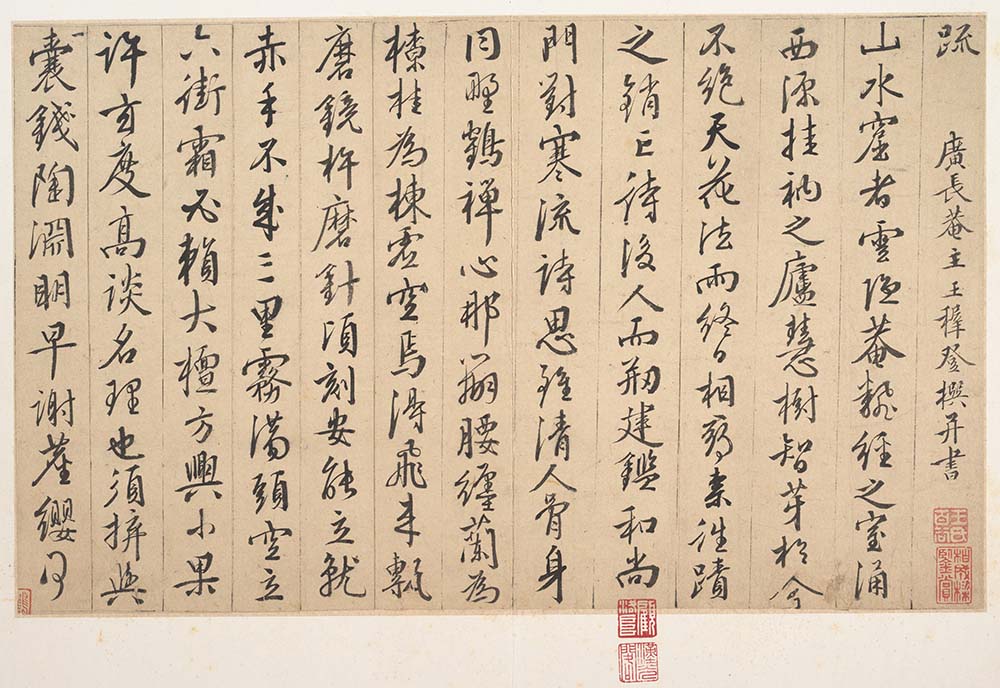 疏
廣長菴主王穉登撰并書
山水窟者雲隐菴翻經之室涌
西源挂衲之廬慧樹智芽於今
不絕天花法雨終日相尋柰往蹟
之銷亡待後人而剏建鑑和尚
門對寒流詩思雖清人骨身
同野鶴禪心那腰纏蘭為
橑桂為棟虛空焉得飛來甎
磨鏡杵磨針頃刻安能立就
赤手不成三里霧滿頭空立
六街霜必賴大檀方興小果
許玄度高談名理也須與
囊錢陶淵明早謝塵纓